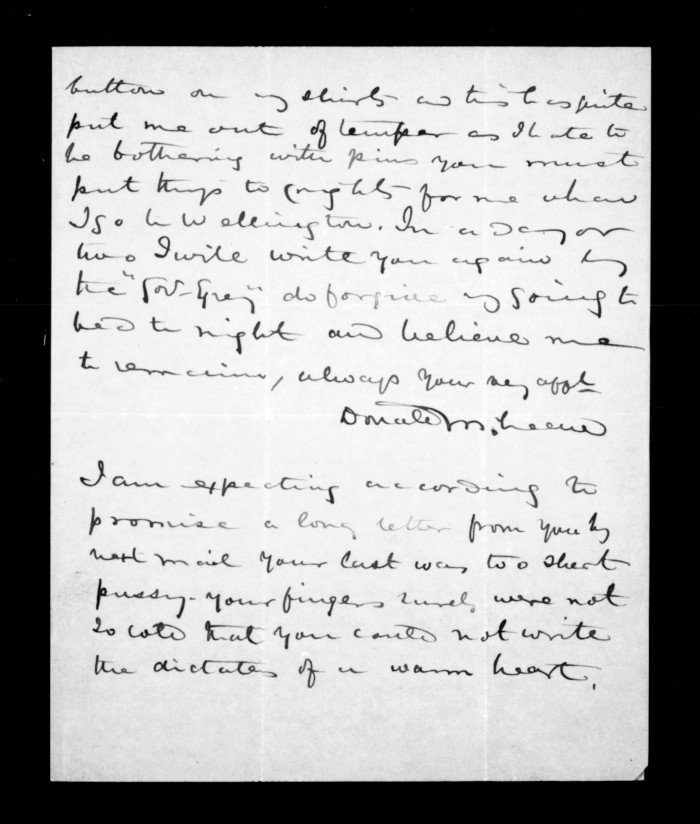 button on my shirts and this has quite
put me out of temper as I hate to
be bothering with pins you must
put things to rights for me when
I go to Wellington. In a day or
two I will write you again by
the "Gov-Grey" do forgive my going to
bed to night and believe me
to remain, always your very affte
Donald McLean
I am expecting according to
promise a long letter from you by
next mail your last was too short
pussy- your fingers surely were not
so cold that you could not write
the dictates of a warm heart.